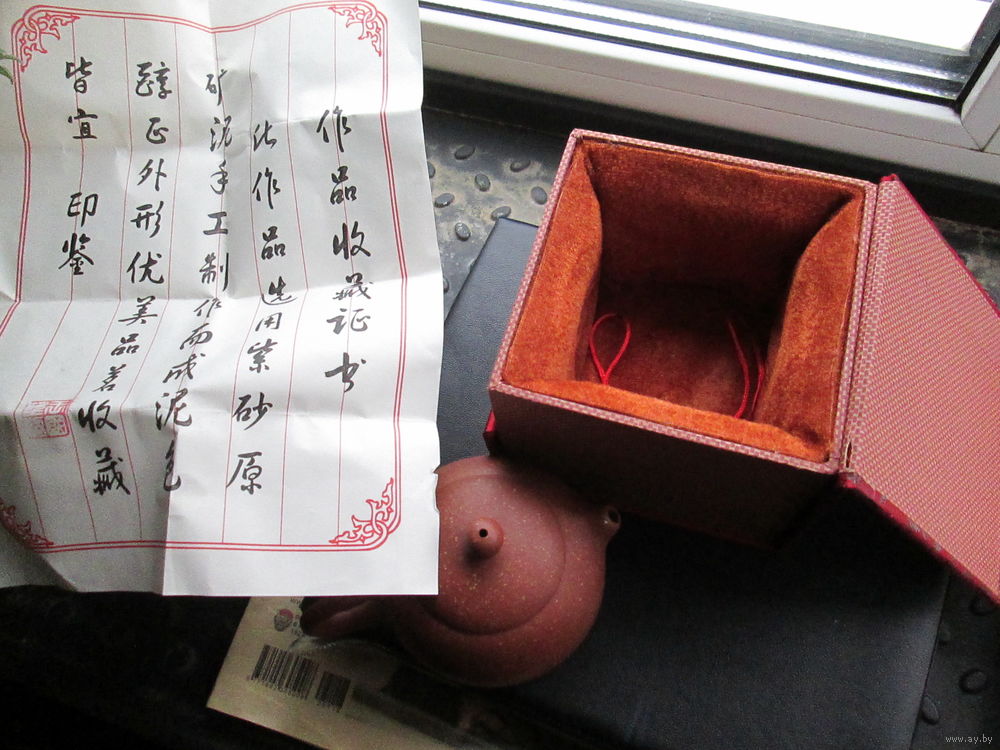 作品收藏证书
此作品选用紫砂原
矿泥手工制作而成泥色
醇正外形优美品茗收藏
皆宜 印鉴
www.ay.by